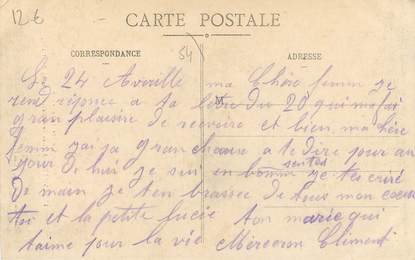 12 €
CARTE POSTALE
54
CORRESPONDANCE
ADRESSE
Le 24 Avrille ma Chère femm je
rend réponce a ta lètre du 20 qui ma fai
M
gran plaisire de recevoire et bien ma chère
femm jai pa gran chause a te dire pour au
jour de hui je suis en bonne santée je teu criré
De main je ten brasse de tous mon coeur
toi et la petite lucie ton marie qui
taime pour la vie Merceron Climent